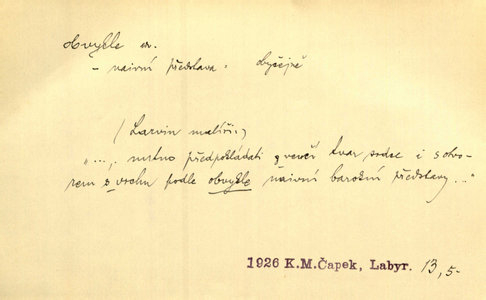 obvykle adv.
- naivní představa: obyčejně
(Larvin malíři:)
"..., nutno předpokládati zevčí tvar srdce i s otvo-
rem s vrchu podle obvykle naivní barokní představy..."
1926 K.M.Čapek, Labyr. 13,5-